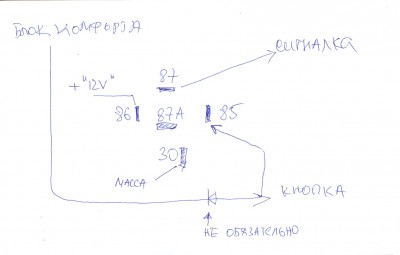 БЛОК КОМФОРТА
СИГНАЛКА
87
+"12V"
86
87A
85
30
МАССА
КНОПКА
НЕ ОБЯЗАТЕЛЬНО